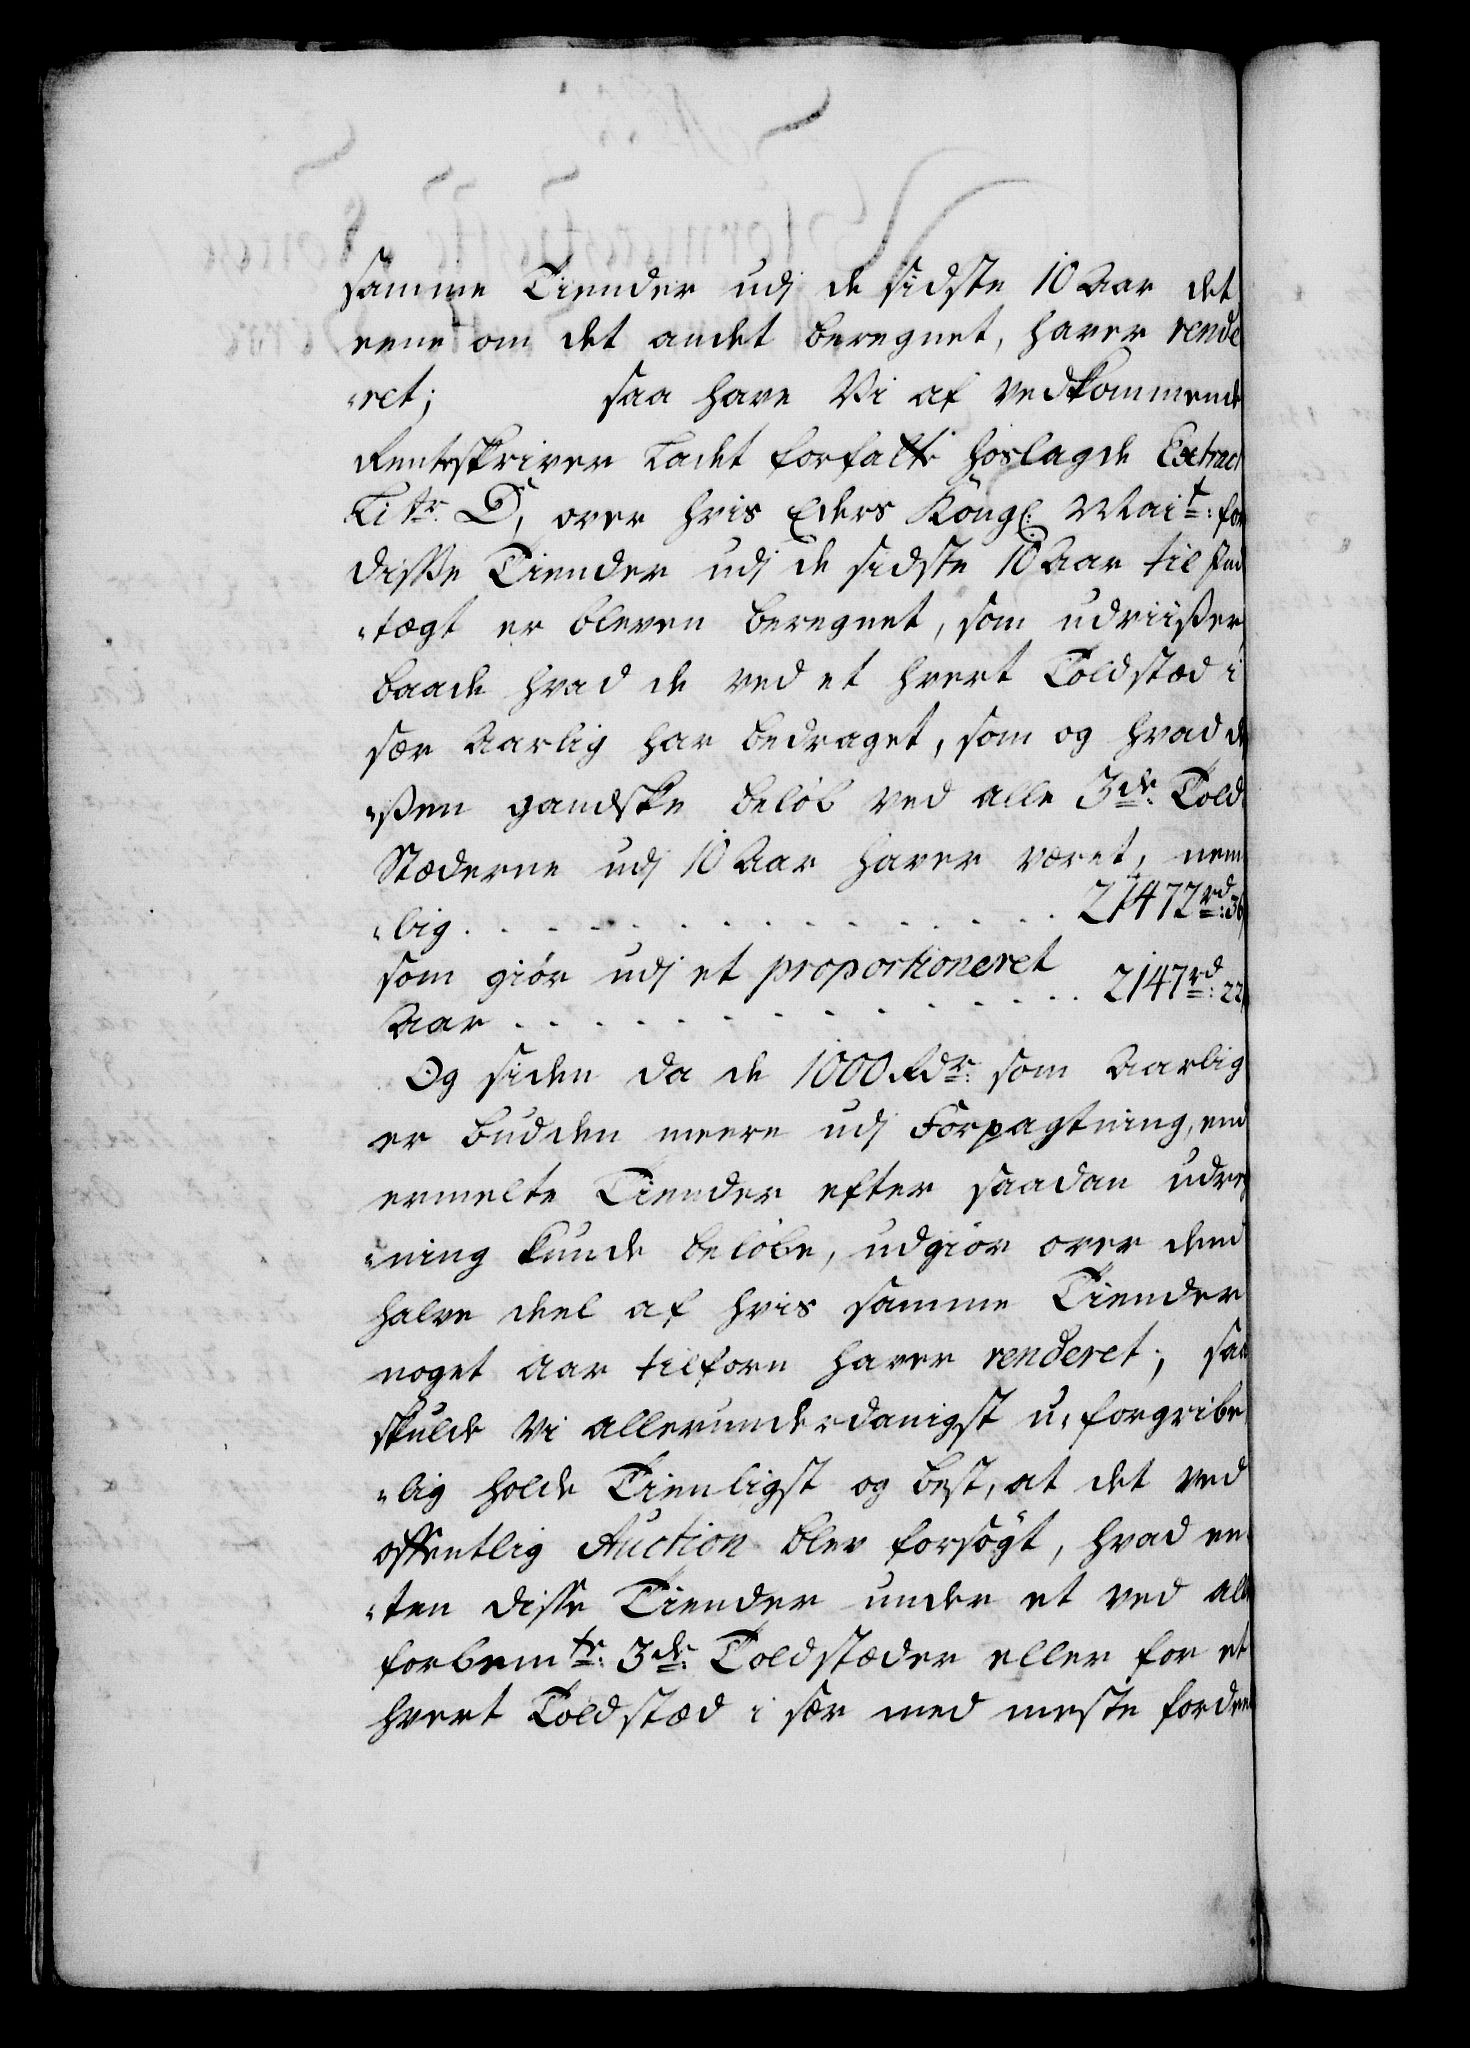 samme Tiender udj de sidste 10 Aar det
eene om det andet beregnet, haver rende
-ret; saa have Vi af vedkommende
Renteskriver Ladet forfatte hoslagde Extract
Litr. D, over hvis Eders Kongl: Mait: for
disse Tiender udj de sidste 10 Aar til Ind
-tægt er bleven beregnet, som udviißer
baade hvad de ved et hvert Toldstæd i
sær Aarlig har bedraget, som og hvad de
-ßen gandske beløb ved alle 3de Told
Stæderne udj 10 Aar haver været, nem
-lig. . . . . . . . . . . . . . 21472rd: 36
som giør udj et proportioneret
Aar . . . . . . . . . . . . . . 2147rd: 22
Og siden da de 1000 Rdr: som Aarlig
er budden meere udj Forpagtning, end
ermelte Tiender efter saadan udreg
-ning kunde beløbe, udgiør over dend
halve deel af hvis samme Tiender
noget Aar tilforn haver renderet; saa
skulde Vi allerunderdanigst u-forgribe
-lig holde Tienligst og best, at det ved
offentlig Auction blev forsøgt, hvad en
-ten disse Tiender under et ved alle
forbemte: 3de: Toldstæder eller for et
hvert Toldstæd i sær med meste fordeel